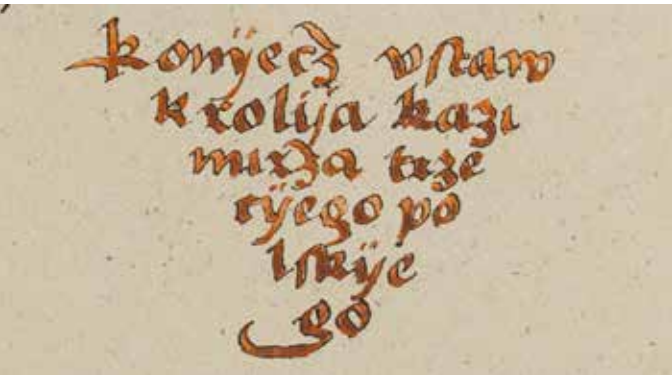 konÿecz vstaw
krolÿa kazi
mirza trze
cÿego po
lskÿe
go